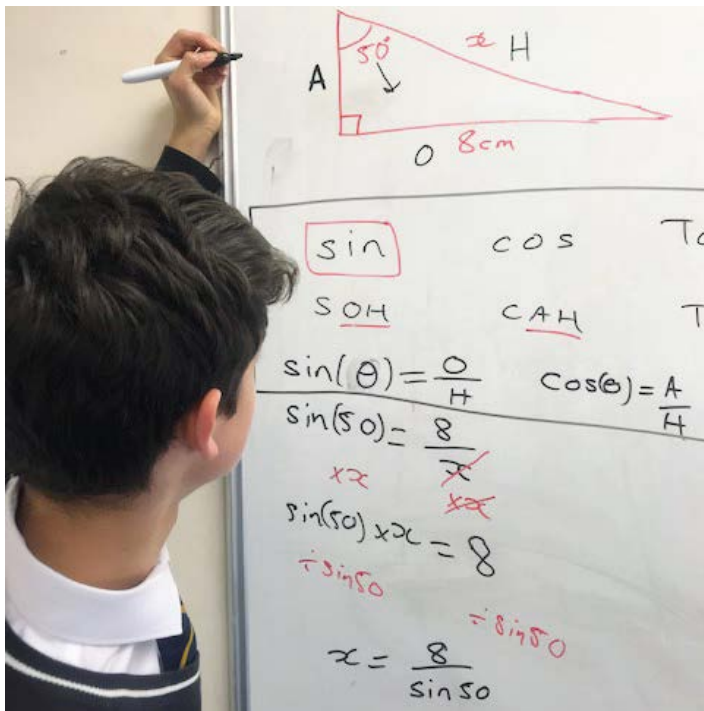 50° x H
A
O 8cm
sin cos
SOH CAH T
sin(θ) = O/H cos(θ) = A/H
sin(50) = 8/x
×x ×x
sin(50) ×x = 8
÷sin50 ÷sin50
x = 8/sin50